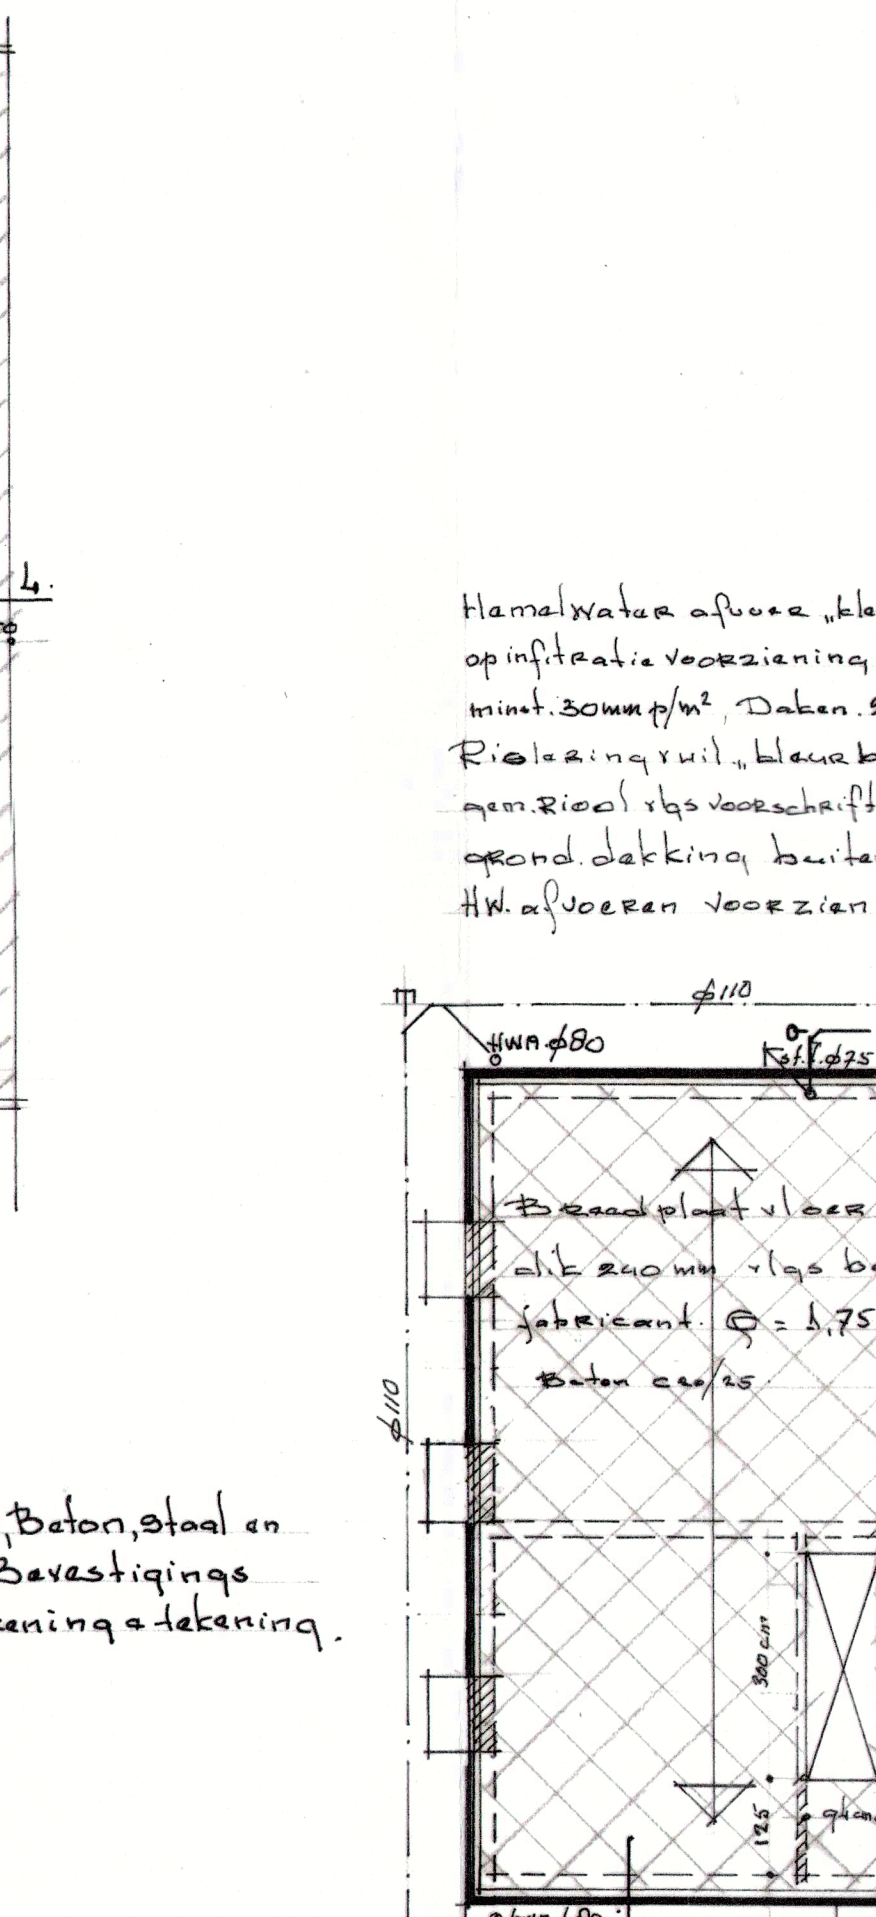 4.
Hemelwater afvoer „kle
op infitratie voorziening
minst. 30mm p/m², Daken.
Riolering vuil „kleur b
gem. Riool vlgs voorschrift
grond. dekking buite
HW. afvoeren voorzien
ϕ110
HWA. ϕ80
Kst. ϕ75
Breedplaat vloer
dik 240 mm vlgs be
fabricant. Q = 1,75
Beton C20/25.
ϕ110
, Beton, staal en
Bevestigings
kening & tekening.
300 cm
125